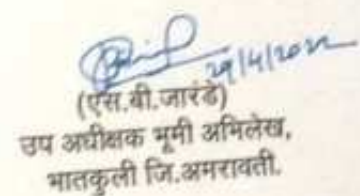 29/4/2022
(एस.बी.जारंडे)
उप अधीक्षक भूमी अभिलेख,
भातकुली जि.अमरावती.